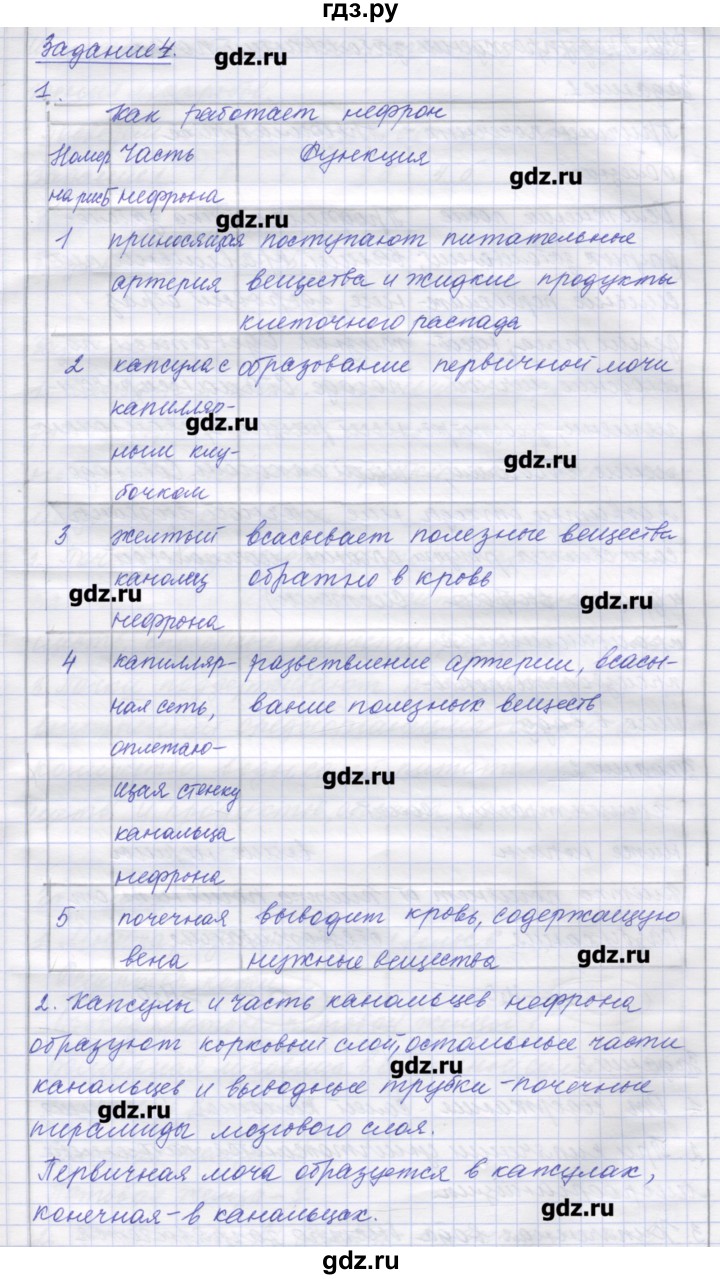 гдз.ру
Задание 4.
gdz.ru
1.
Как работает нефрон
Номер Часть Функция
gdz.ru
на рис5 нефрона
gdz.ru
1 приносящая поступают питательные
артерия вещества и жидкие продукты
клеточного распада
2 капсула с образование первичной мочи
капилляр-
gdz.ru
ным клу-
gdz.ru
бочком
3 желтый всасывает полезные вещества
каналец обратно в кровь
gdz.ru
gdz.ru
нефрона
4 капилляр- разветвление артерии, всасы-
ная сеть, вание полезных веществ
оплетаю-
gdz.ru
щая стенку
канальца
нефрона
5 почечная выводит кровь, содержащую
вена нужные вещества
gdz.ru
2. Капсулы и часть канальцев нефрона
образуют корковый слой, остальные части
gdz.ru
канальцев и выводные трубки - почечные
gdz.ru
пирамиды мозгового слоя.
Первичная моча образуется в капсулах,
конечная - в канальцах.
gdz.ru
gdz.ru